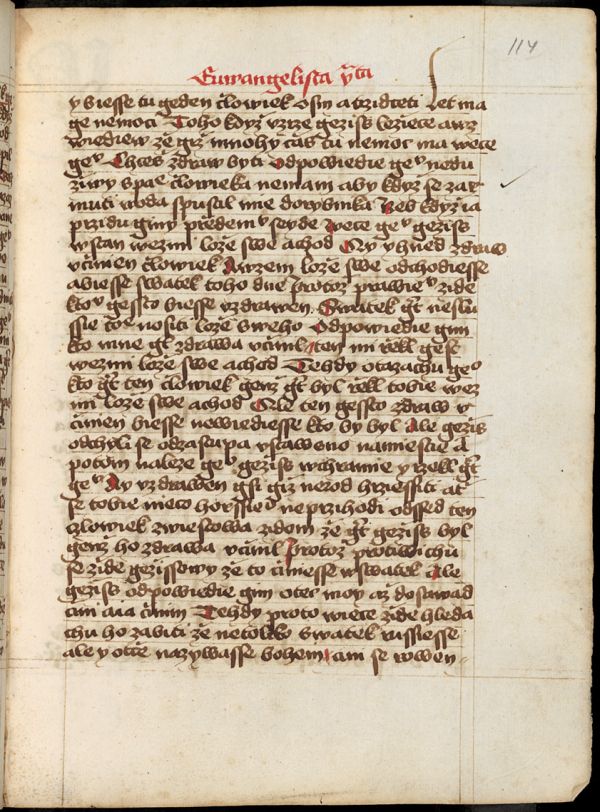 114
Euwangelista s̃ta
y biesse tu geden človiek osm a trzidceti let ma
ge nemoci Toho když uzrze geziss leziece a wz
wiediew že giž mnohy čas tu nemoc ma wece
geᵘ Chceš zdraw byti Odpowiedie geᵘ nedu
živy Pane človieka nemam aby když se zar
muti woda spustil mie do rybnika Neb když ia
przidu giny přede mᵘ sende wece geᵘ geziss
wstan wezmi lože swe a chod Ay yhned zdraw
učinen človiek a wzem lože swe odchodiesse
a biesse swatek toho dne protož prawieᵘ zide
ktoᵘ gessto biesse uzdrawen Swatek gt̃ neslu
ssie tobie nositi lože sweho Odpowiedie gim
kto mne gt̃ zdrawa učinil ten mi řekl gest
wezmi lože swe a chod Tehdy otazachu geᵒ
kto gt̃ ten človiek genž gt̃ byl řekl tobie wez
mi lože swe a chod Ale ten gessto zdraw u
činen biesse newiediesse kto by byl Ale geziss
odchyli se od zastupa ustaweno na miestie A
potom naleze geᵒ geziss w chramie y rzekl gt̃
geᵘ Ay uzdrawen gsi giž nerod hrziessiti at
se tobie nieco horssieᵒ neprzihodi odssed ten
človiek zwiestowa zidom že gt̃ geziss byl
genž ho zdrawa učinil protož protiwichu
se zide gezissowy že to činiesse w swatek Ale
geziss odpowiedie gim otec moy až dosawad
čini a ia činim Tehdy proto wiece zide hleda
chu ho zabiti že netoliko swatek russiesse
ale y otce nazywasse bohem sam se rowen-